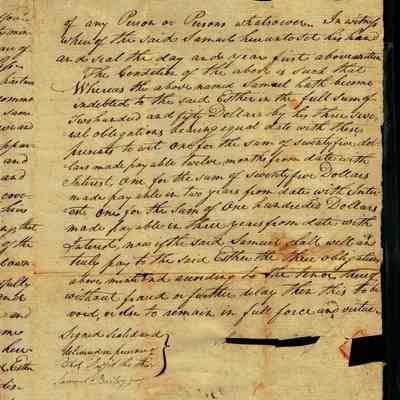 of any Person or Persons whatsoever. In witness
whereof the said Samuel hereunto set his hand
and seal the day and year first above written
The Condition of the above is Such that
Whereas the above named Samuel hath become
indebted to the said Esther in the full Sum of
Two hundred and fifty Dollars by his three Seve-
ral obligations bearing equal date with these
presents to wit One for the sum of Seventy five dol-
lars made payable twelve months from date with
Interest, One for the Sum of Seventy five Dollars
made payable in two years from date with Inter-
est One for the Sum of One hundred Dollars
made payable in three years from date with
Interest, now if the said Samuel shall well and
truly pay to the said Esther the three obligations
above mentiond according to the tenor thereof
without fraud or further delay then this to be
void, or else to remain in full force and virtue
Signed Sealed and
Delivered in presence of
Samuel Bailey